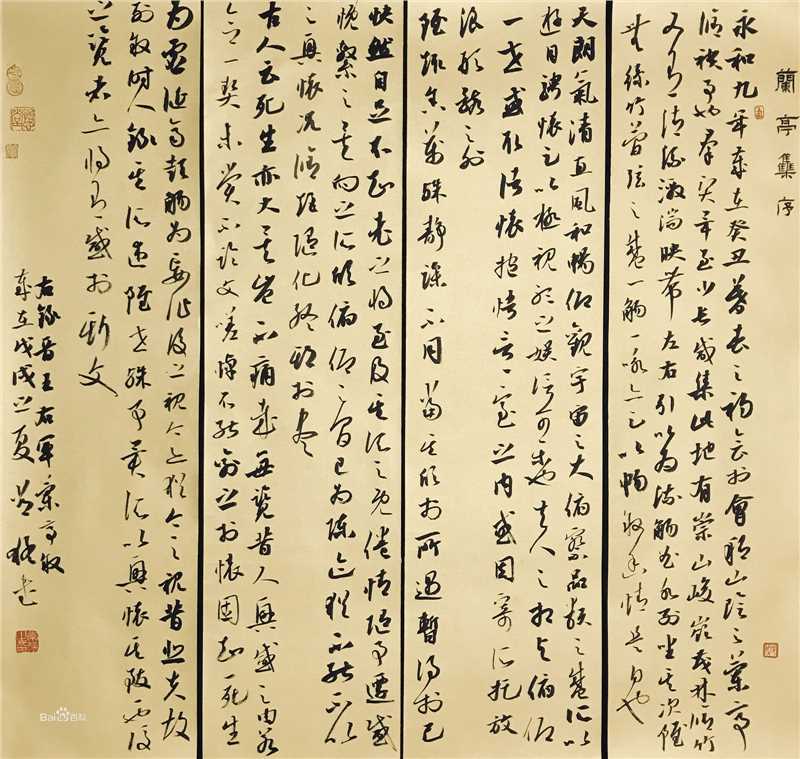 蘭亭集序
永和九年歲在癸丑暮春之初會於會稽山陰之蘭亭
脩禊事也群賢畢至少長咸集此地有崇山峻嶺茂林脩竹
又有清流激湍映帶左右引以為流觴曲水列坐其次雖
無絲竹管弦之盛一觴一詠亦足以暢敘幽情是日也
天朗氣清惠風和暢仰觀宇宙之大俯察品類之盛所以
遊目騁懷足以極視聽之娛信可樂也夫人之相與俯仰
一世或取諸懷抱悟言一室之內或因寄所託放
浪形骸之外
雖趣舍萬殊靜躁不同當其欣於所遇暫得於己
快然自足不知老之將至及其所之既倦情隨事遷感
慨繫之矣向之所欣俯仰之間已為陳跡猶不能不以
之興懷況脩短隨化終期於盡
古人云死生亦大矣豈不痛哉每覽昔人興感之由若
合一契未嘗不臨文嗟悼不能喻之於懷固知一死生
為虛誕齊彭殤為妄作後之視今亦猶今之視昔悲夫故
列敘時人錄其所述雖世殊事異所以興懷其致一也後
之覽者亦將有感於斯文
右錄晉王右軍蘭亭敘
歲在戊戌之夏 書
Bai百科